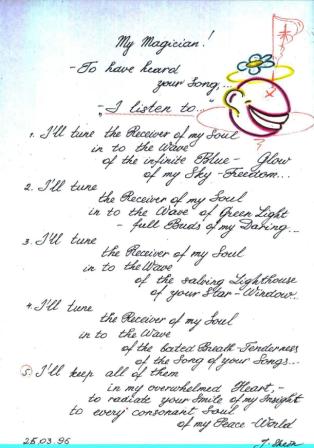 My Magician!
- To have heard
your Song,...
- „I listen to..."
1. I'll tune the Receiver of my Soul
in to the Wave
of the infinite Blue - Glow
of my Sky - Freedom...
2. I'll tune
the Receiver of my Soul
in to the Wave of Green Light
- full Buds of my Daring...
3. I'll tune
the Receiver of my Soul
in to the Wave
of the salving Lighthouse
of your Star - Window...
4. I'll tune
the Receiver of my Soul
in to the Wave
of the bated Breath - Tenderness
of the Song of your Songs...
5. I'll keep all of them
in my overwhelmed Heart, -
to radiate your Smile of my Insight
to every consonant Soul
of my Peace - World
25.03.96